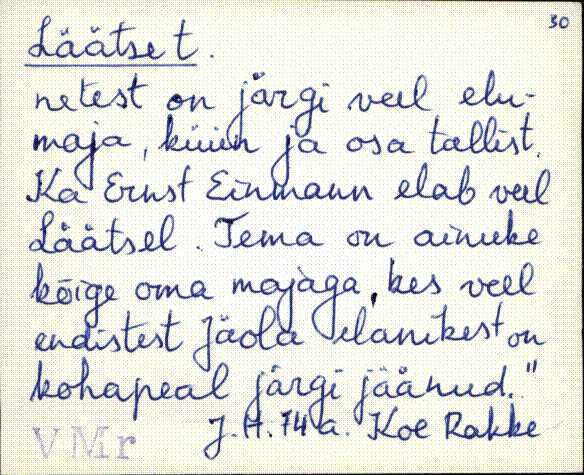 30
Läätset.
netest on järgi veel elu-
maja, küün ja osa tallist.
Ka Ernst Einmann elab veel
Läätsel. Tema on ainuke
kõige oma majaga, kes veel
endistest Jäola elanikest on
kohapeal järgi jäänud."
J. H. 74 a. Koe Rakke
VMr